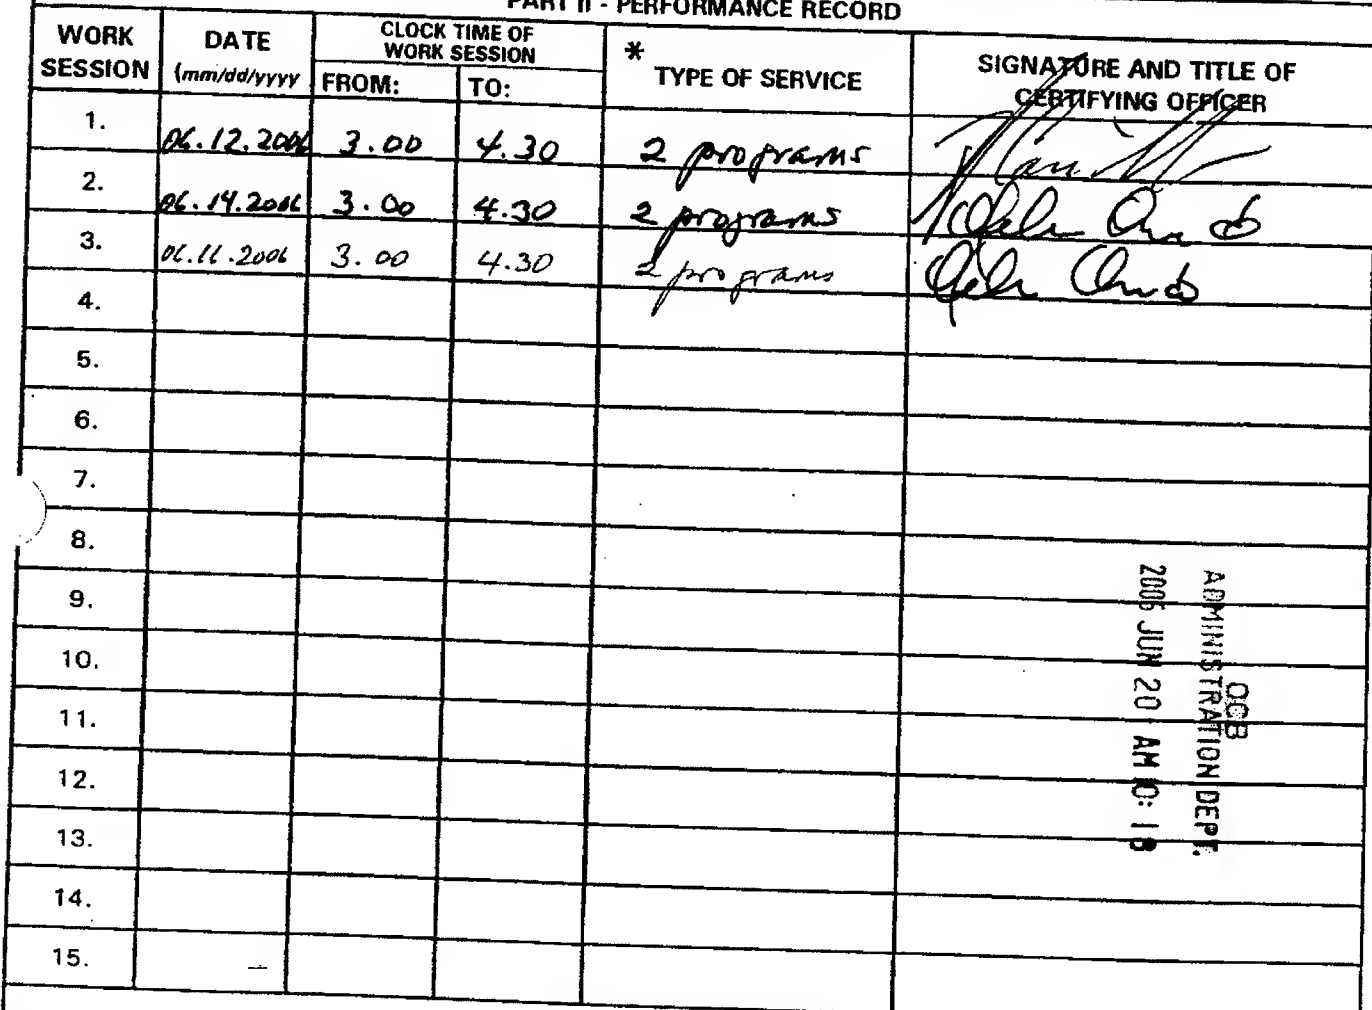 PART II - PERFORMANCE RECORD
WORK SESSION
DATE (mm/dd/yyyy
CLOCK TIME OF WORK SESSION
FROM:
TO:
* TYPE OF SERVICE
SIGNATURE AND TITLE OF CERTIFYING OFFICER
1. 06.12.2006 3.00 4.30 2 programs
2. 06.14.2006 3.00 4.30 2 programs
3. 3.00 4.30 2 programs
4.
5.
6.
7.
8.
9.
10.
11.
12.
13.
14.
15.
OCB
ADMINISTRATION DEPT.
2006 JUN 20 AM 10:18